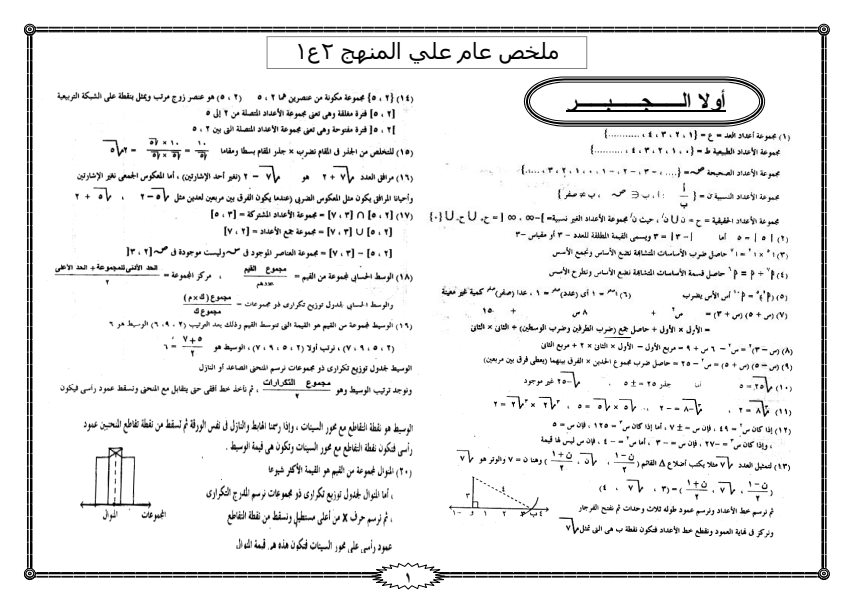 ملخص عام علي المنهج ٢ع١
أولا الـــجـــبـــر
(١) مجموعة أعداد العد = ع = {١ ، ٢ ، ٣ ، ٤ ، ...........}
مجموعة الأعداد الطبيعية ط = {٠ ، ١ ، ٢ ، ٣ ، ٤ ، ..........}
مجموعة الأعداد الصحيحة صـ = {.... ، -٣ ، -٢ ، -١ ، ٠ ، ١ ، ٢ ، ٣ ، ....}
مجموعة الأعداد النسبية ن = { أ/ب : أ ، ب ∈ صـ ، ب ≠ صفر }
مجموعة الأعداد الحقيقية = ح = ن ∪ نَ ، حيث نَ مجموعة الأعداد الغير نسبية = ]-∞ ، ∞[ = ح+ ∪ ح- ∪ {٠}
(٢) | ٥ | = ٥ أما | -٣ | = ٣ ويسمى القيمة المطلقة للعدد -٣ أو مقياس -٣
حاصل ضرب الأساسات المتشابهة نضع الأساس ونجمع الأسس
حاصل قسمة الأساسات المتشابهة نضع الأساس ونطرح الأسس
أس الأس يضرب (٦) أ^صفر = ١ أى (عدد)^صفر = ١ ، عدا (صفر)^صفر كمية غير معينة
(٧) (س + ٥) (س + ٣) = س٢ + ٨ س + ١٥
= الأول × الأول + حاصل جمع (ضرب الطرفين وضرب الوسطين) + الثانى × الثانى
(٨) (س - ٣)٢ = س٢ - ٦ س + ٩ = مربع الأول - الأول × الثانى × ٢ + مربع الثانى
(٩) (س - ٥) (س + ٥) = س٢ - ٢٥ = حاصل ضرب مجموع الحدين × الفرق بينهما (يعطى فرق بين مربعين)
(١٠) √٢٥ = ٥ أما جذر ٢٥ = ± ٥ ، √-٢٥ غير موجود
(١١) ∛٨ = ٢ ، ∛-٨ = -٢ ، √٥ × √٥ = ٥ ، ∛٢ × ∛٢
(١٢) إذا كان س٢ = ٤٩ ، فإن س = ± ٧ ، أما إذا كان س٣ = ١٢٥ ، فإن س = ٥
، وإذا كان س٣ = -٢٧ ، فإن س = -٣ ، أما س٢ = -٤ ، فإن س ليس لها قيمة
(١٣) لتمثيل العدد √٧ مثلا يكتب أضلاع Δ القائم (ن-١/٢ ، √ن ، ن+١/٢) وهنا ن = ٧ والوتر هو √٧
(ن-١/٢ ، √٧ ، ن+١/٢) = (٣ ، √٧ ، ٤)
ثم نرسم خط الأعداد ونرسم عمود طوله ثلاث وحدات ثم نفتح الفرجار
ونركز فى نهاية العمود ونقطع خط الأعداد فتكون نقطة ب هى التى تمثل √٧
(١٤) {٢ ، ٥} مجموعة مكونة من عنصرين هما ٢ ، ٥ (٢ ، ٥) هو عنصر زوج مرتب ويمثل بنقطة على الشبكة التربيعية
[٢ ، ٥] فترة مغلقة وهى تعنى مجموعة الأعداد المتصلة من ٢ إلى ٥
]٢ ، ٥[ فترة مفتوحة وهى تعنى مجموعة الأعداد المتصلة التى بين ٢ ، ٥
(١٥) للتخلص من الجذر فى المقام نضرب × جذر المقام بسطا ومقاما ١٠/√٥ = ١٠ × √٥ / √٥ × √٥ = ٢√٥
(١٦) مرافق العدد √٧ + ٢ هو √٧ - ٢ (تغير أحد الإشارتين) ، أما المعكوس الجمعى نغير الإشارتين
وأحيانا المرافق يكون مثل المعكوس الضربى (عندما يكون الفرق بين مربعين لعددين مثل √٥ - ٢ ، √٥ + ٢
(١٧) [٢ ، ٥] ∩ [٣ ، ٧] = مجموعة الأعداد المشتركة = [٣ ، ٥]
[٢ ، ٥] ∪ [٣ ، ٧] = مجموعة جمع الأعداد = [٢ ، ٧]
[٢ ، ٥] - [٣ ، ٧] = مجموعة العناصر الموجود فى سـ وليست موجودة فى صـ = [٢ ، ٣[
(١٨) الوسط الحسابى لمجموعة من القيم = مجموع القيم / عددهم ، مركز المجموعة = الحد الأدنى للمجموعة + الحد الأعلى / ٢
والوسط الحسابى لجدول توزيع تكرارى ذو مجموعات = مجموع (ك × م) / مجموع ك
(١٩) الوسيط لمجموعة من القيم هو القيمة التى تتوسط القيم وذلك بعد الترتيب (٢ ، ٩ ، ٦) الوسيط هو ٦
(٢ ، ٥ ، ٩ ، ٧) ، نرتب أولا (٢ ، ٥ ، ٧ ، ٩) ، الوسيط هو ٥ + ٧ / ٢ = ٦
الوسيط لجدول توزيع تكرارى ذو مجموعات نرسم المنحنى الصاعد أو النازل
ونوجد ترتيب الوسيط وهو مجموع التكرارات / ٢ ، ثم نأخذ خط أفقى حتى يتقابل مع المنحنى ونسقط عمود رأسى فيكون
الوسيط هو نقطة التقاطع مع محور السينات ، وإذا رسمنا الهابط والنازل فى نفس الورقة ثم نسقط من نقطة تقاطع المنحنيين عمود
رأسى فتكون نقطة التقاطع مع محور السينات وتكون هى قيمة الوسيط
(٢٠) المنوال لمجموعة من القيم هو القيمة الأكثر شيوعا
، أما المنوال لجدول توزيع تكرارى ذو مجموعات نرسم المدرج التكرارى
، ثم نرسم حرف X من أعلى مستطيل ونسقط من نقطة التقاطع
عمود رأسى على محور السينات فتكون هذه هى قيمة المنوال
المنوال المجموعات
١